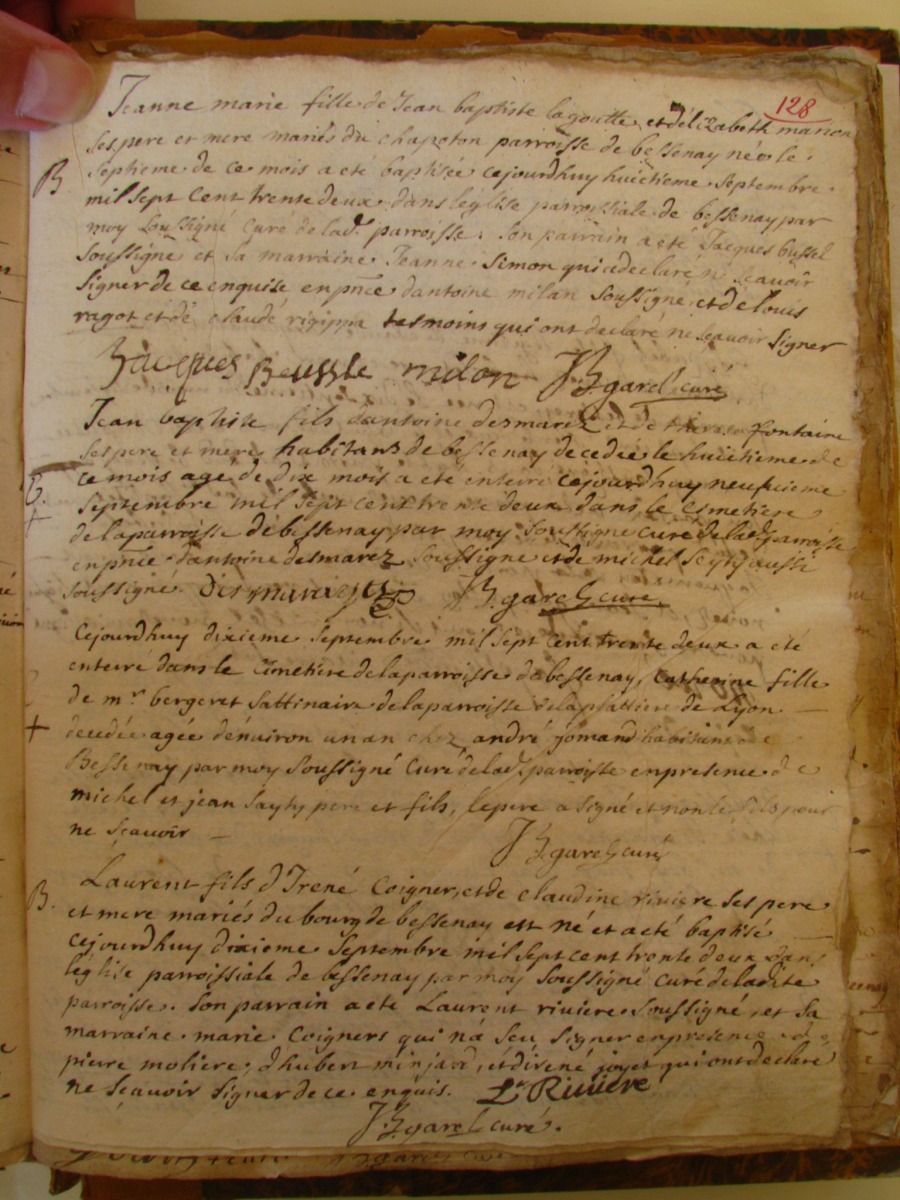 128
Jeanne marie fille de Jean baptiste lagoutte et délizabeth marion
ses pere et mere mariés du chapoton parroisse de bessenay née le
B septieme de ce mois a eté baptisée cejourdhuy huictieme septembre
mil sept cent trente deux dans léglise parroissiale de bessenay par
moy soussigné curé de lad. parroisse. son parrain a eté Jacques bussel
soussigné et sa marraine Jeanne Simon qui a declaré ne scavoir
signer de ce enquise en pnce dantoine milan soussigné et de louis
ragot et de claude tesmoins qui ont declaré ne scavoir signer
Jacques Beussle milon JB garel curé
Jean baptiste fils dantoine desmarez et de fontaine
ses pere et mere habitans de bessenay decedée le huictieme de
ce mois agé de dix mois a eté enterré cejourdhuy neufvieme
septembre mil sept cent trente deux dans le cimetiere
de la parroisse de bessenay par moy soussigné curé de lad parroisse
en pnce dantoine desmarez soussigné et de michel aussi
soussigné JB garel curé
Cejourdhuy dixieme septembre mil sept cent trente deux a eté
enterré dans le cimetiere de la parroisse de bessenay, catherine fille
de mr bergeret sattinaire de la parroisse de la plattiere de Lyon
decedée agée dénviron un an chez andré jomand habitant de
Bessenay par moy soussigné curé de lad. parroisse en presence de
michel et jean pere et fils, le pere a signé et non le fils pour
ne scavoir
JB garel curé
B. Laurent fils d Irené Coigner, et de claudine riviere ses pere
et mere mariés du bourg de bessenay est né et a eté baptisé
cejourdhuy dixieme septembre mil sept cent trente deux dans
léglise parroissiale de bessenay par moy soussigné curé de ladite
parroisse. son parrain a eté Laurent riviere soussigné, et sa
marraine marie Coigners qui na sceu signer en presence de
pierre moliere, dhubert minjard, et direné joyet qui ont declaré
ne scavoir signer de ce enquis. L. Riviere
JB garel curé.